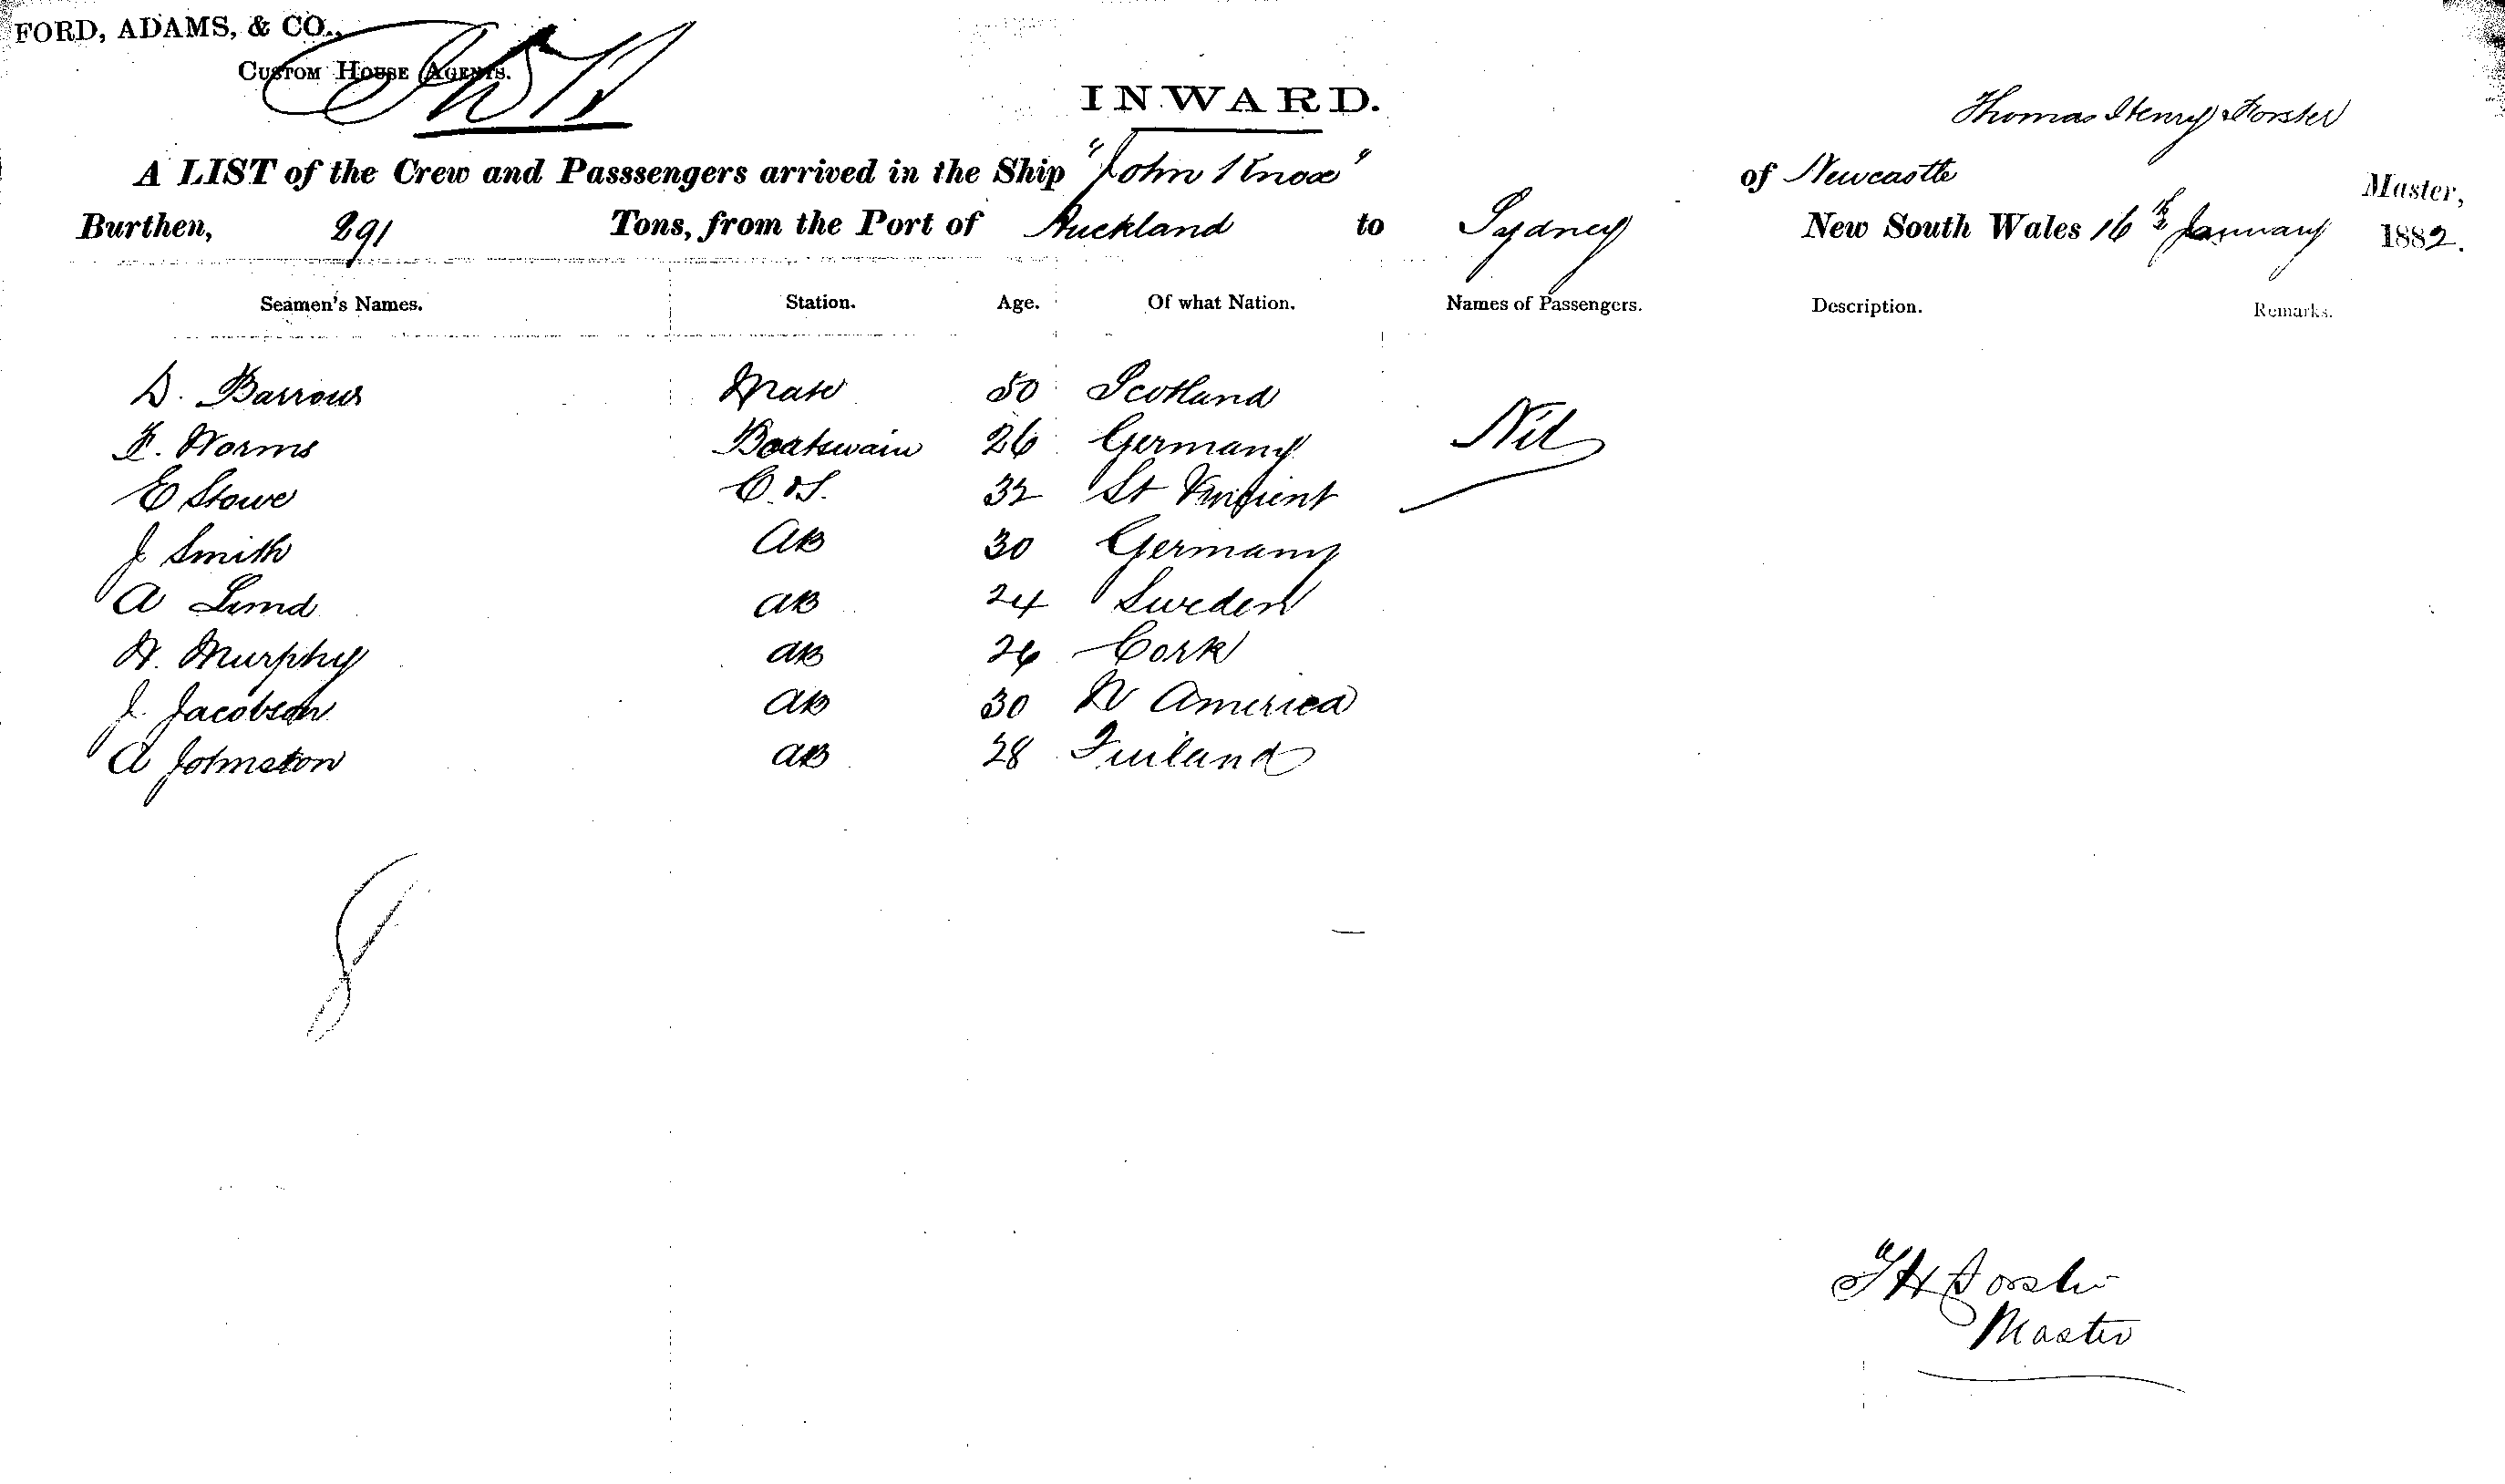 FORD, ADAMS, & CO.,
CUSTOM HOUSE AGENTS.
INWARD.
Thomas Henry Forster
A LIST of the Crew and Passsengers arrived in the Ship "John Knox" of Newcastle Master,
Burthen, 291 Tons, from the Port of Auckland to Sydney New South Wales 16th January 1882.
Seamen's Names. Station. Age. Of what Nation. Names of Passengers. Description. Remarks.
D. Barrows Mate 50 Scotland
F. Worms Boatswain 26 Germany Nil
E Stowe C & S. 32 St Vincient
J Smith AB 30 Germany
A Lund AB 24 Sweden
W. Murphy AB 26 Cork
J. Jacobson AB 30 N America
A Johnston AB 28 Finland
8
T H Forster
Master